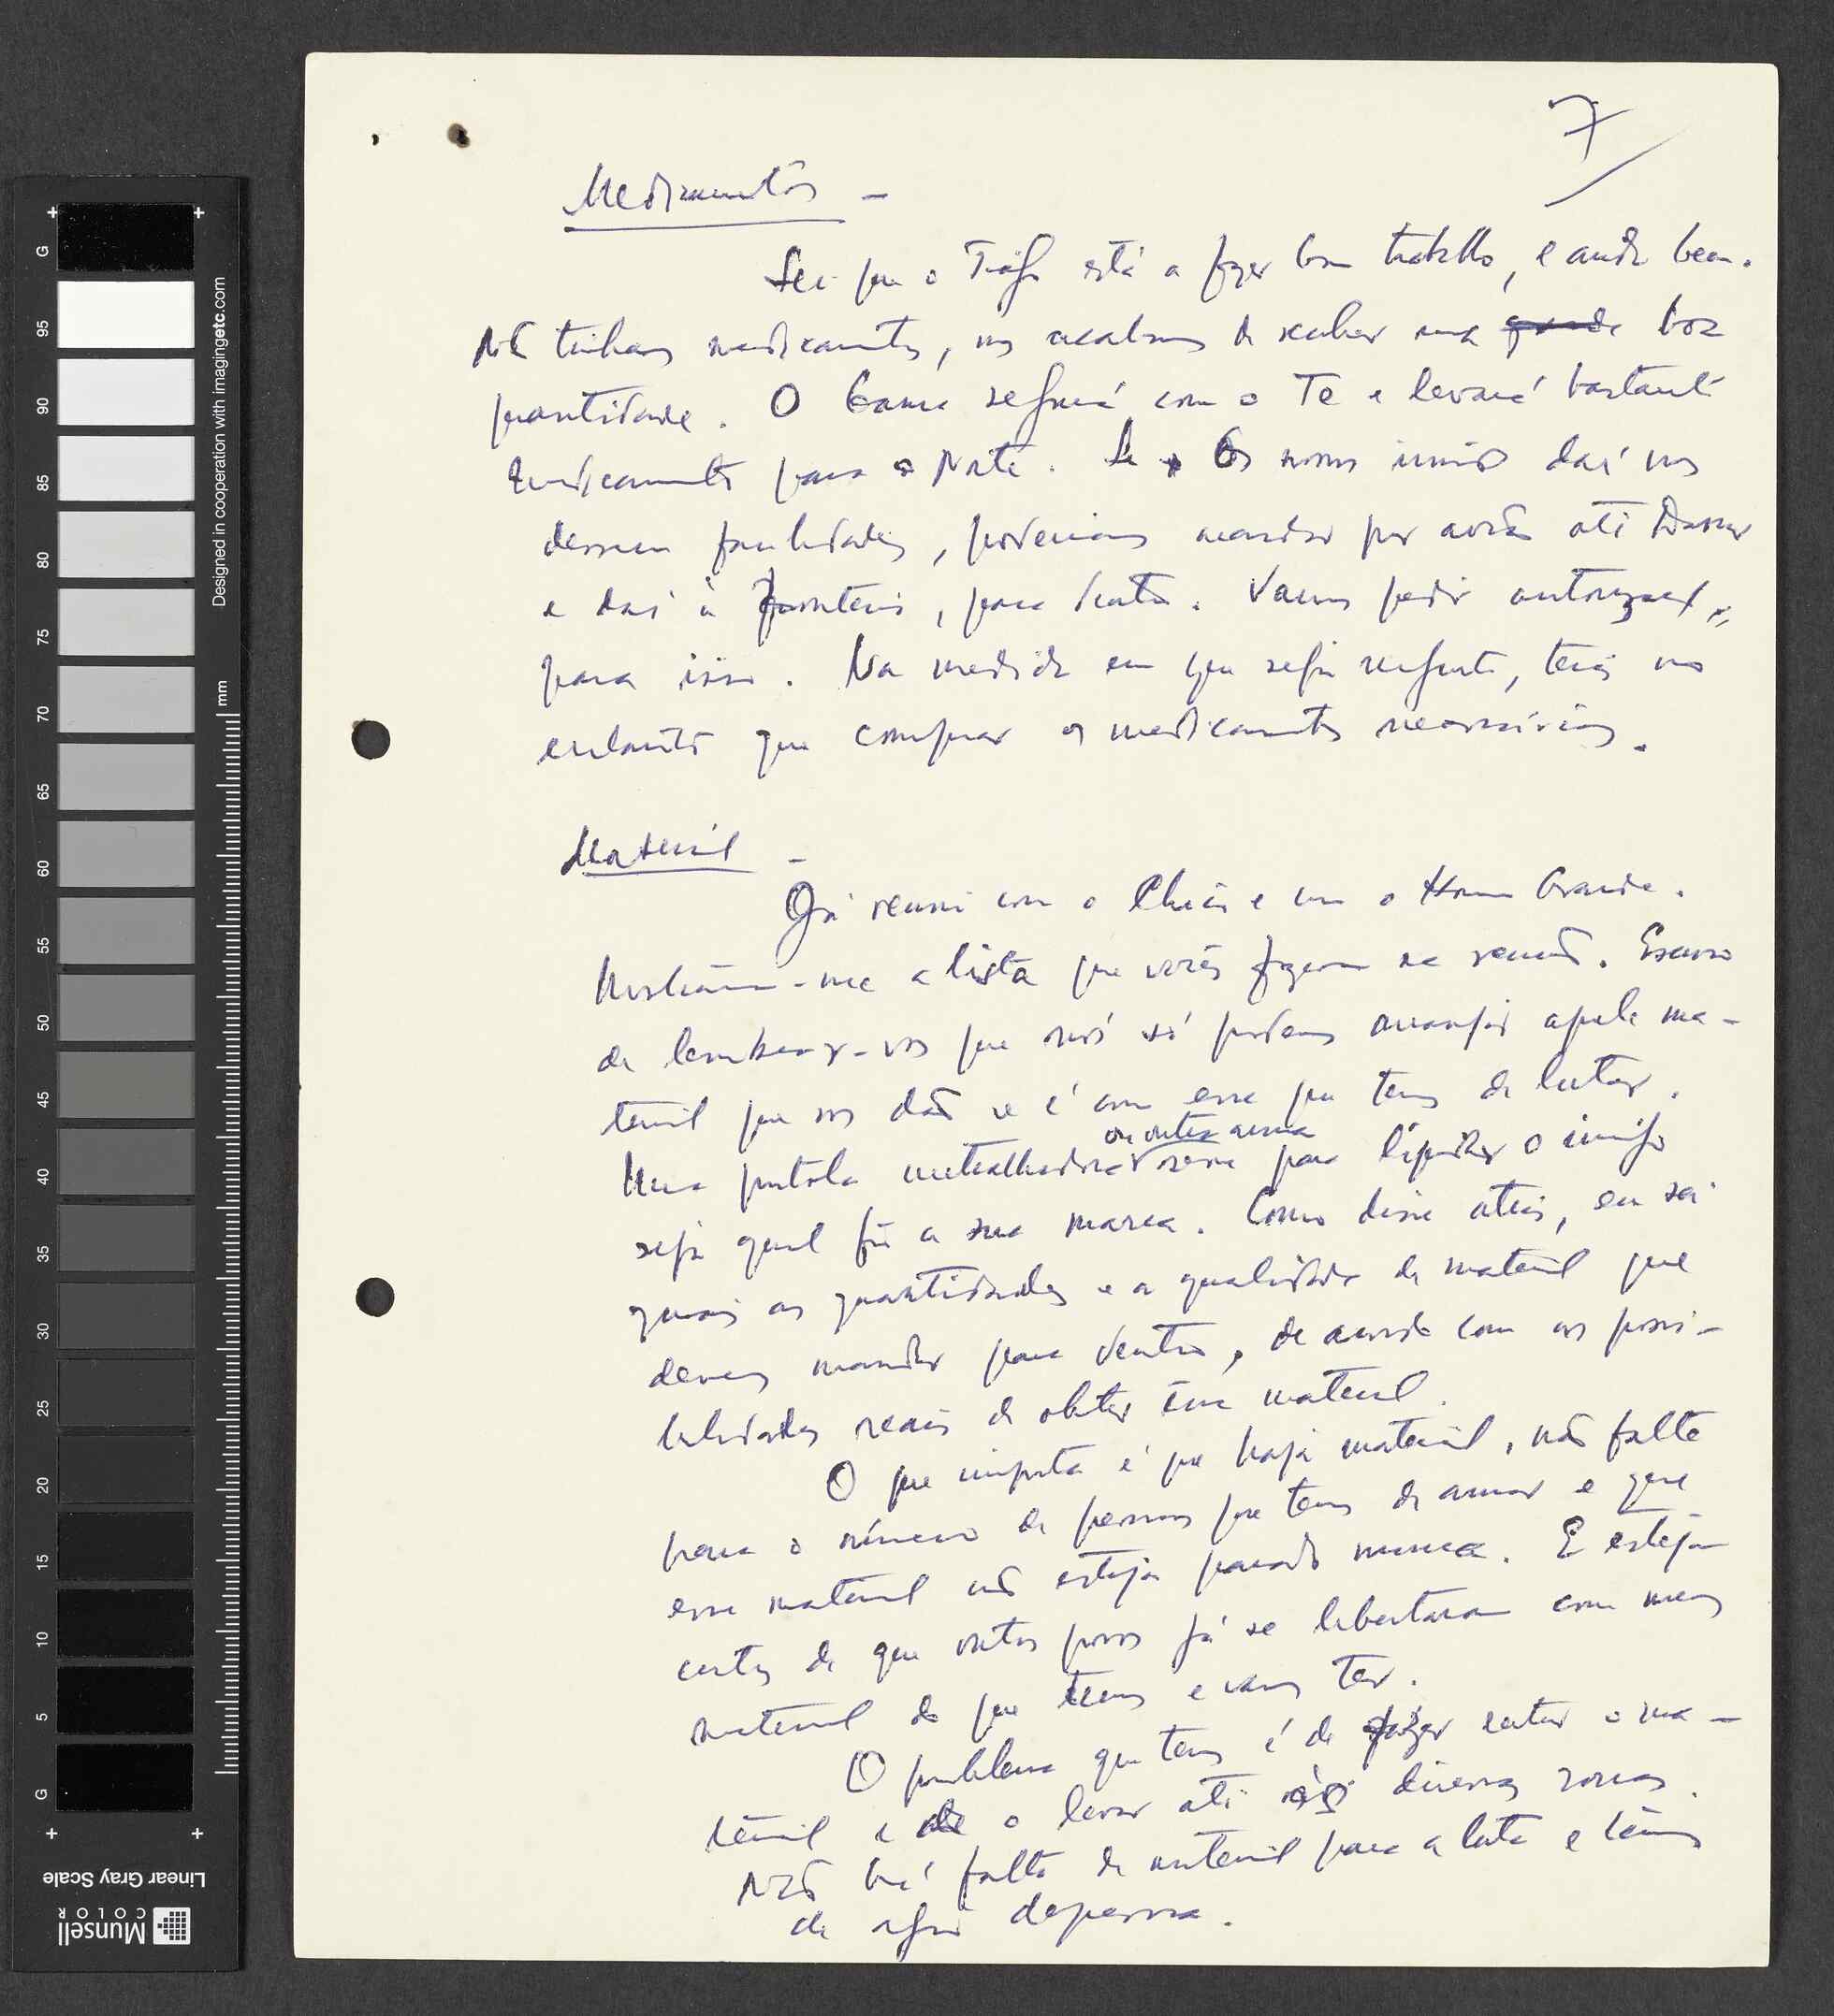 7
Medicamentos –
Sei que o Tiago está a fazer bom trabalho, e ainda bem.
Não tinhamos medicamentos, mas acabamos de receber uma grande boa
quantidade. O Gama seguirá com o Te e levará bastante
medicamento para o Norte. Se os nossos irmãos daí nos
dessem facilidades, poderiamos mandar por avião até
e daí à fronteira, para dentro. Vamos pedir autorização
para isso. Na medida em que seja urgente, terás no
entanto que comprar os medicamentos necessários.
Material –
Já reuni com o Chico e com o Homem Grande.
Mostraram-me a lista que vocês fizeram na reunião. Escuso
de lembrar-vos que nós só podemos arranjar aquele ma-
terial que nos dão e é com esse que temos de lutar.
ou outra arma
Uma pistola metralhadora serve para liquidar o inimigo
seja qual fôr a sua marca. Como disse atrás, eu sei
quais as quantidades e a qualidade de material que
devemos mandar para dentro, de acordo com as possi-
bilidades reais de obter êsse material.
O que importa é que haja material, não falte
para o número de pessoas que temos de armar e que
esse material não esteja parado nunca. E estejam
certos de que outros povos já se libertaram com menos
material do que temos e vamos ter.
O problema que temos é de fazer entrar o ma-
terial e de o levar até às diversas zonas.
Não há falta de material para a luta e temos
de agir depressa.
G
95
90
85
80
75
70
65
60
55
50
45
40
35
30
25
20
15
10
5
G
mm
Designed in cooperation with imagingetc.com
Linear Gray Scale
Munsell
COLOR